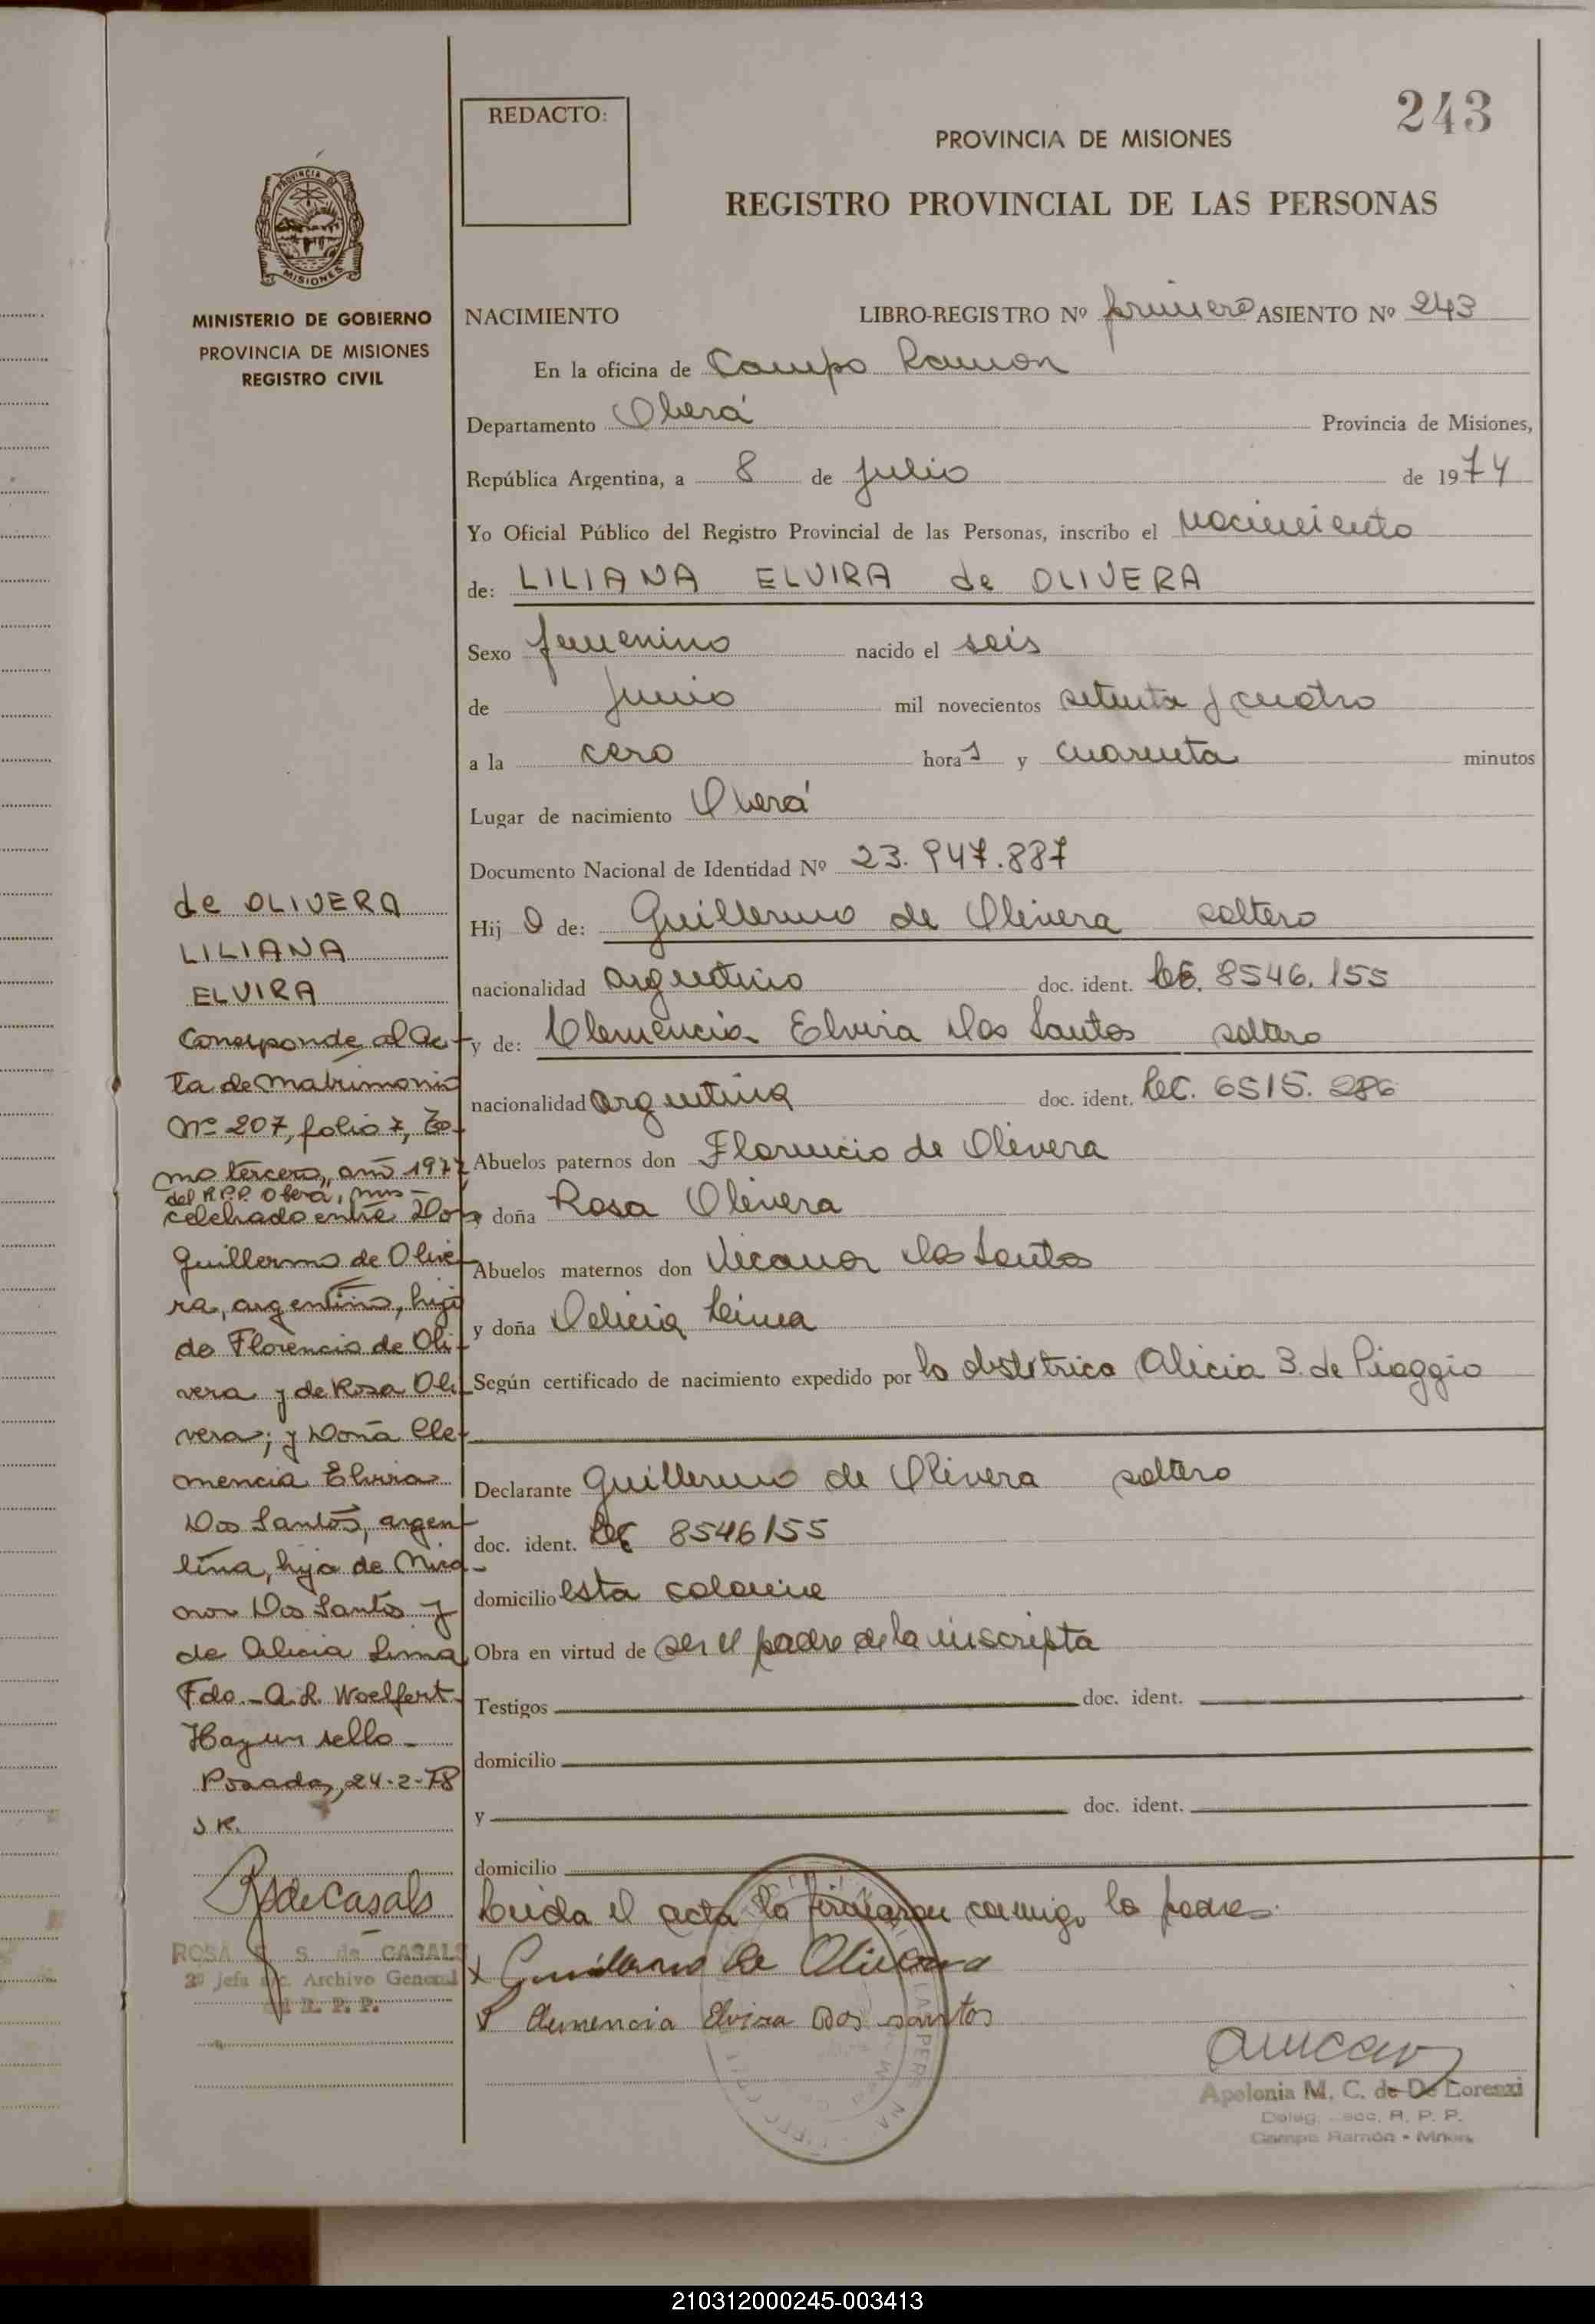 243
REDACTO:
PROVINCIA DE MISIONES
REGISTRO PROVINCIAL DE LAS PERSONAS
PROVINCIA DE
MISIONES
MINISTERIO DE GOBIERNO
PROVINCIA DE MISIONES
REGISTRO CIVIL
NACIMIENTO LIBRO-REGISTRO Nº primero ASIENTO Nº 243
En la oficina de Campo Ramon
Departamento Oberá Provincia de Misiones,
República Argentina, a 8 de julio de 1974
Yo Oficial Público del Registro Provincial de las Personas, inscribo el nacimiento
de: LILIANA ELVIRA de OLIVERA
Sexo femenino nacido el seis
de junio mil novecientos setenta y cuatro
a la cero horas y cuarenta minutos
Lugar de nacimiento Oberá
Documento Nacional de Identidad Nº 23.947.887
Hija de: Guillermo de Olivera soltero
nacionalidad argentino doc. ident. LE. 8546.155
y de: Clemencia Elvira Dos Santos soltera
nacionalidad argentina doc. ident. LC. 6515.286
Abuelos paternos don Florencio de Olivera
y doña Rosa Olivera
Abuelos maternos don Nicanor Dos Santos
y doña Delicia Lima
Según certificado de nacimiento expedido por la obstetrica Alicia B. de Piaggio
Declarante Guillermo de Olivera soltero
doc. ident. LE 8546155
domicilio esta colonia
Obra en virtud de ser el padre de la inscripta
Testigos doc. ident.
domicilio
y doc. ident.
domicilio
Leida el acta la firmaron conmigo los padres.
x Guillermo de Olivera
x Clemencia Elvira Dos santos
Apolonia M. C. de De Lorenzi
Deleg. R. P. P.
Campo Ramón - Mnes.
de OLIVERA
LILIANA
ELVIRA
Corresponde al Ac-
ta de Matrimonio
Nº 207, folio 7, To-
mo tercero, año 1977
del R.P.P. Oberá, Mns-
celebrado entre Don
Guillermo de Olive-
ra, argentino, hijo
de Florencio de Oli-
vera y de Rosa Oli-
vera; y Doña Cle-
mencia Elvira
Dos Santos, argen-
tina, hija de Nica-
nor Dos Santos y
de Alicia Lima
Fdo.- A.L. Woelfert-
Hay un sello-
Posadas, 24-2-78
J.R.
RSdeCasals
ROSA S. de CASALS
2º Jefa Archivo General
del R. P. P.
210312000245-003413